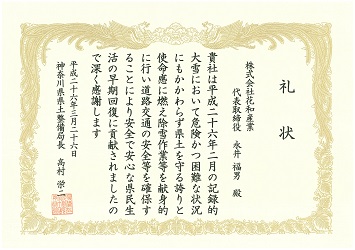 礼状
株式会社花和産業
代表取締役 永井福男 殿
貴社は平成二十六年二月の記録的
大雪において危険かつ困難な状況
にもかかわらず県土を守る誇りと
使命感に燃え除雪作業等を献身的
に行い道路交通の安全等を確保す
ることにより安全で安心な県民生
活の早期回復に貢献されましたの
で深く感謝します
平成二十六年三月二十六日
神奈川県県土整備局長 高村栄二